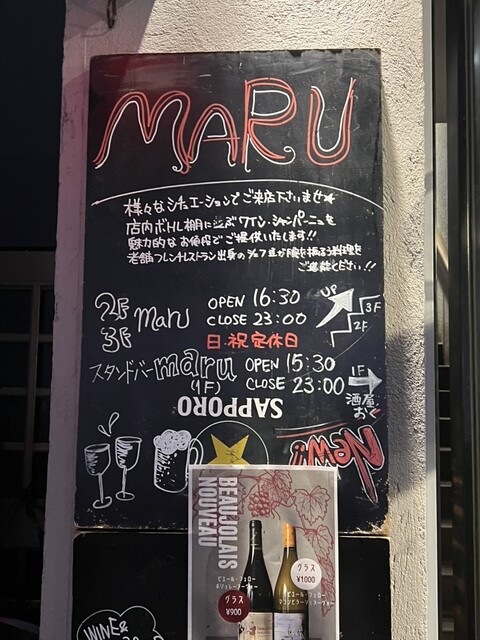 MARU
様々なシチュエーションでご来店下さいませ
店内ボトル棚に並ぶワイン・シャンパーニュを
魅力的なお値段でご提供いたします!!
老舗フレンチレストラン出身のシェフ達が腕を振るう料理を
ご堪能ください!!
2F
3F
maru
OPEN 16:30
CLOSE 23:00
日・祝定休日
UP
3F
2F
スタンドバー maru
(1F)
OPEN 15:30
CLOSE 23:00
1F
酒屋
おく
SAPPORO
New!!
BEAUJOLAIS
NOUVEAU
ピエール・フェロー
ボジョレーヌーヴォー
グラス
¥900
グラス
¥1000
ピエール・フェロー
マコンビラージュヌーヴォー
WINE &